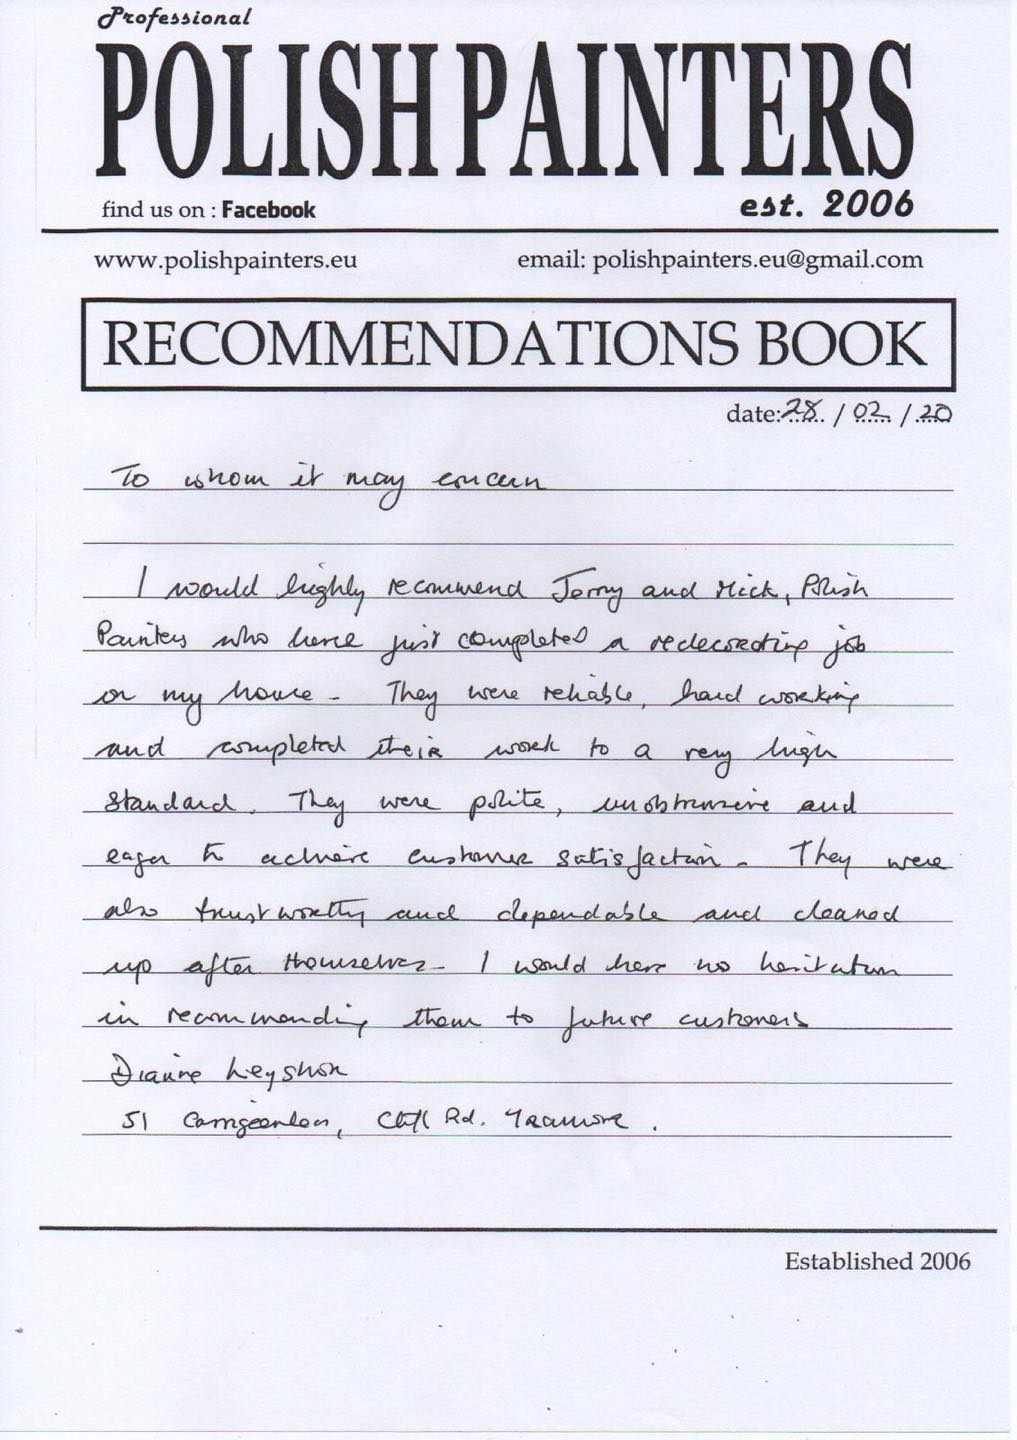 Professional
POLISH PAINTERS
find us on : Facebook
est. 2006
www.polishpainters.eu
email: polishpainters.eu@gmail.com
RECOMMENDATIONS BOOK
date: 28 / 02 / 20
To whom it may concern
I would highly recommend Jerry and Mick, Polish
Painters who have just completed a redecorating job
on my house. They were reliable, hard working
and completed their work to a very high
standard. They were polite, unobtrusive and
eager to achieve customer satisfaction. They were
also trustworthy and dependable and cleaned
up after themselves. I would have no hesitation
in recommending them to future customers
Dianne Leyshon
51 Cliff Rd. Tramore.
Established 2006